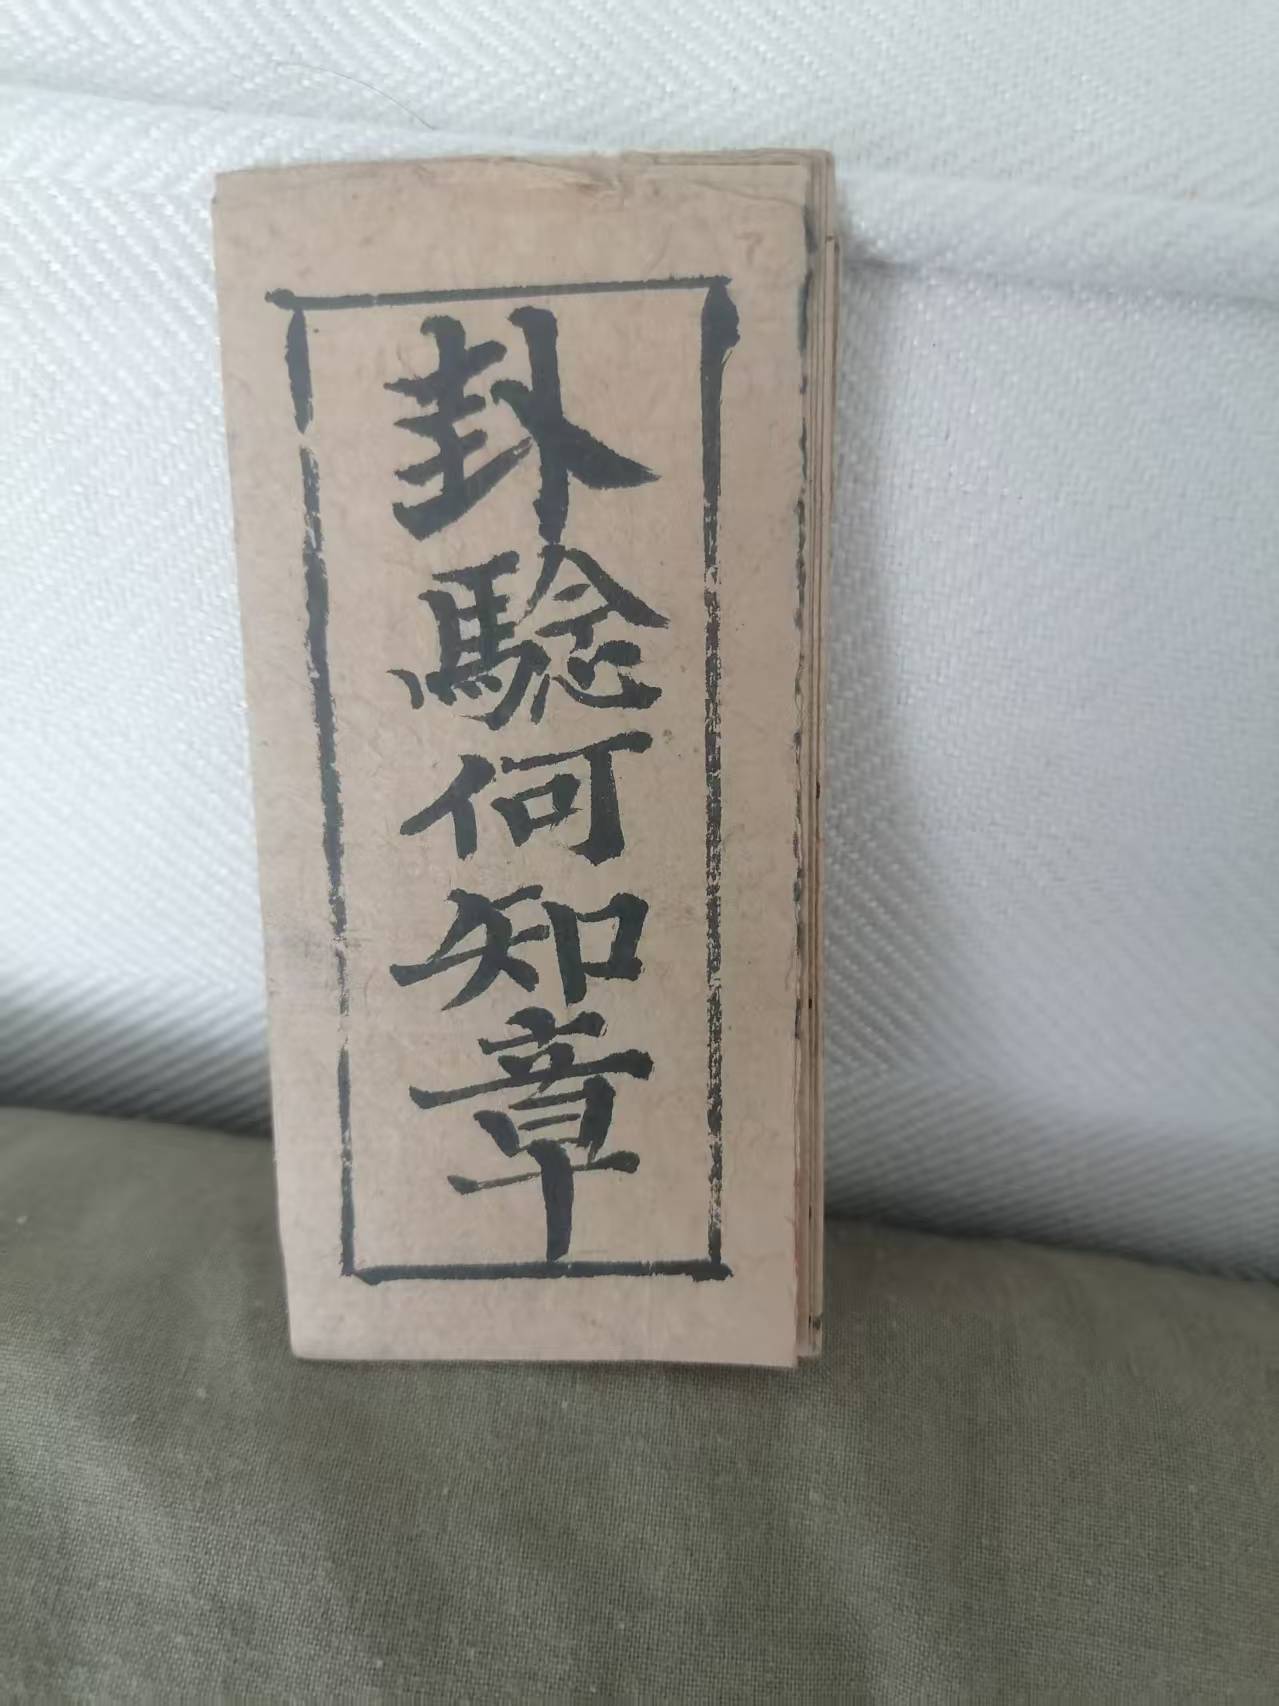 卦騐何知章